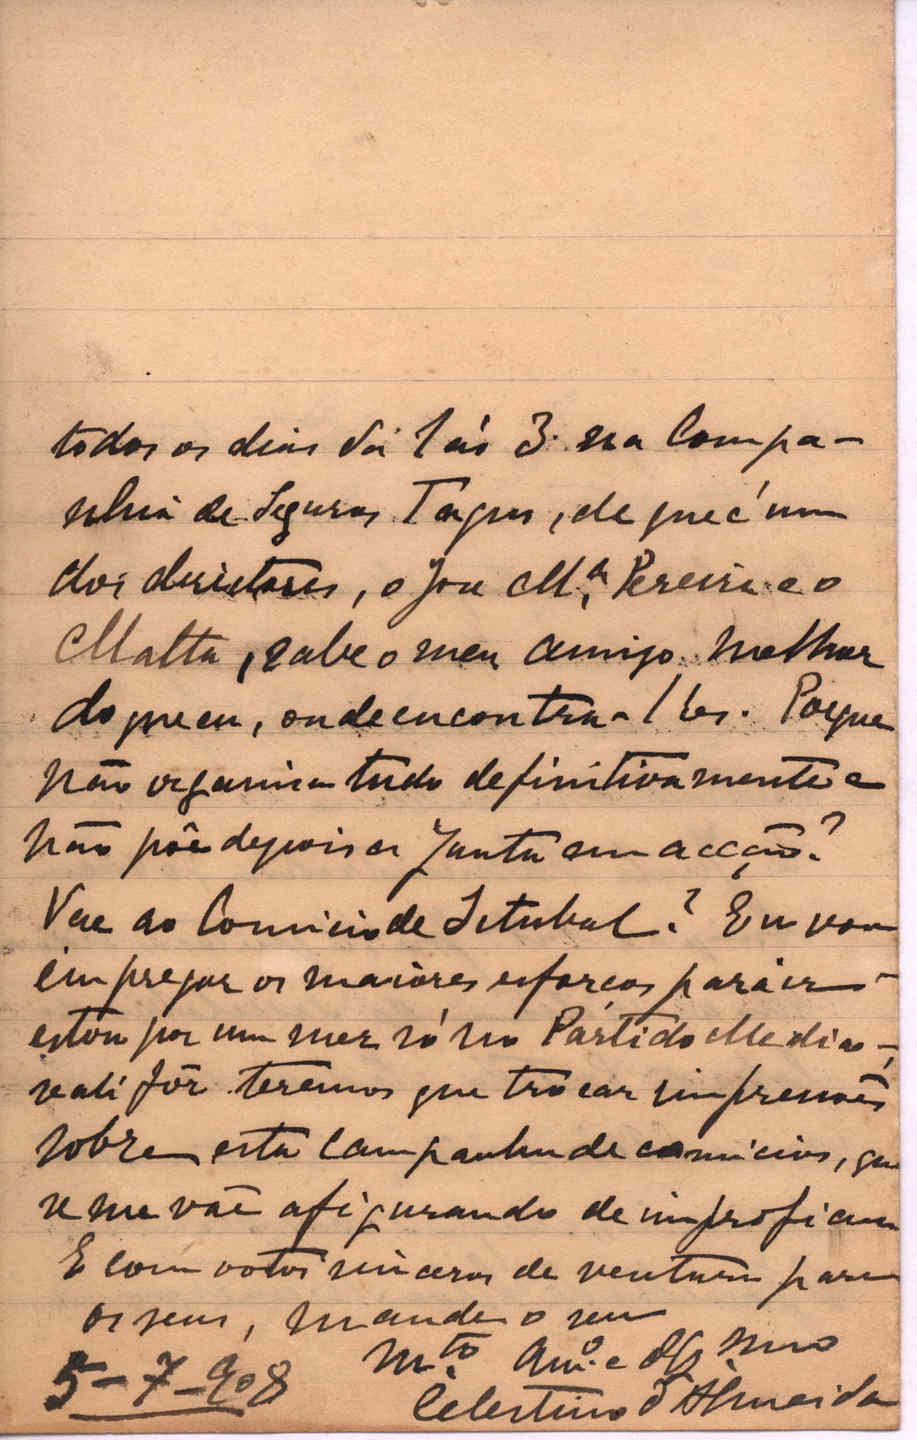 todos os dias das 1 ás 3 na Compa-
nhia de Seguros Tagus, de que é um
dos directores, o José M.ª Pereira e o
Malta, sabe o meu amigo melhor
do que eu, onde encontra-los. Porque
não organisa tudo definitivamente e
não põe depois a Junta em acção?
Vae ao Comicio de Setubal? Eu vou
empregar os maiores esforços para ir
estou por um mez só no Partido Medico -
se ali fôr teremos que trocar impressões
sobre esta campanha de comicios, que
se me vae afigurando de improficua
E com votos sinceros de ventura para
os seus, mande o seu
M.to Am.º e Obg.mo
5-7-908 Celestino d'Almeida